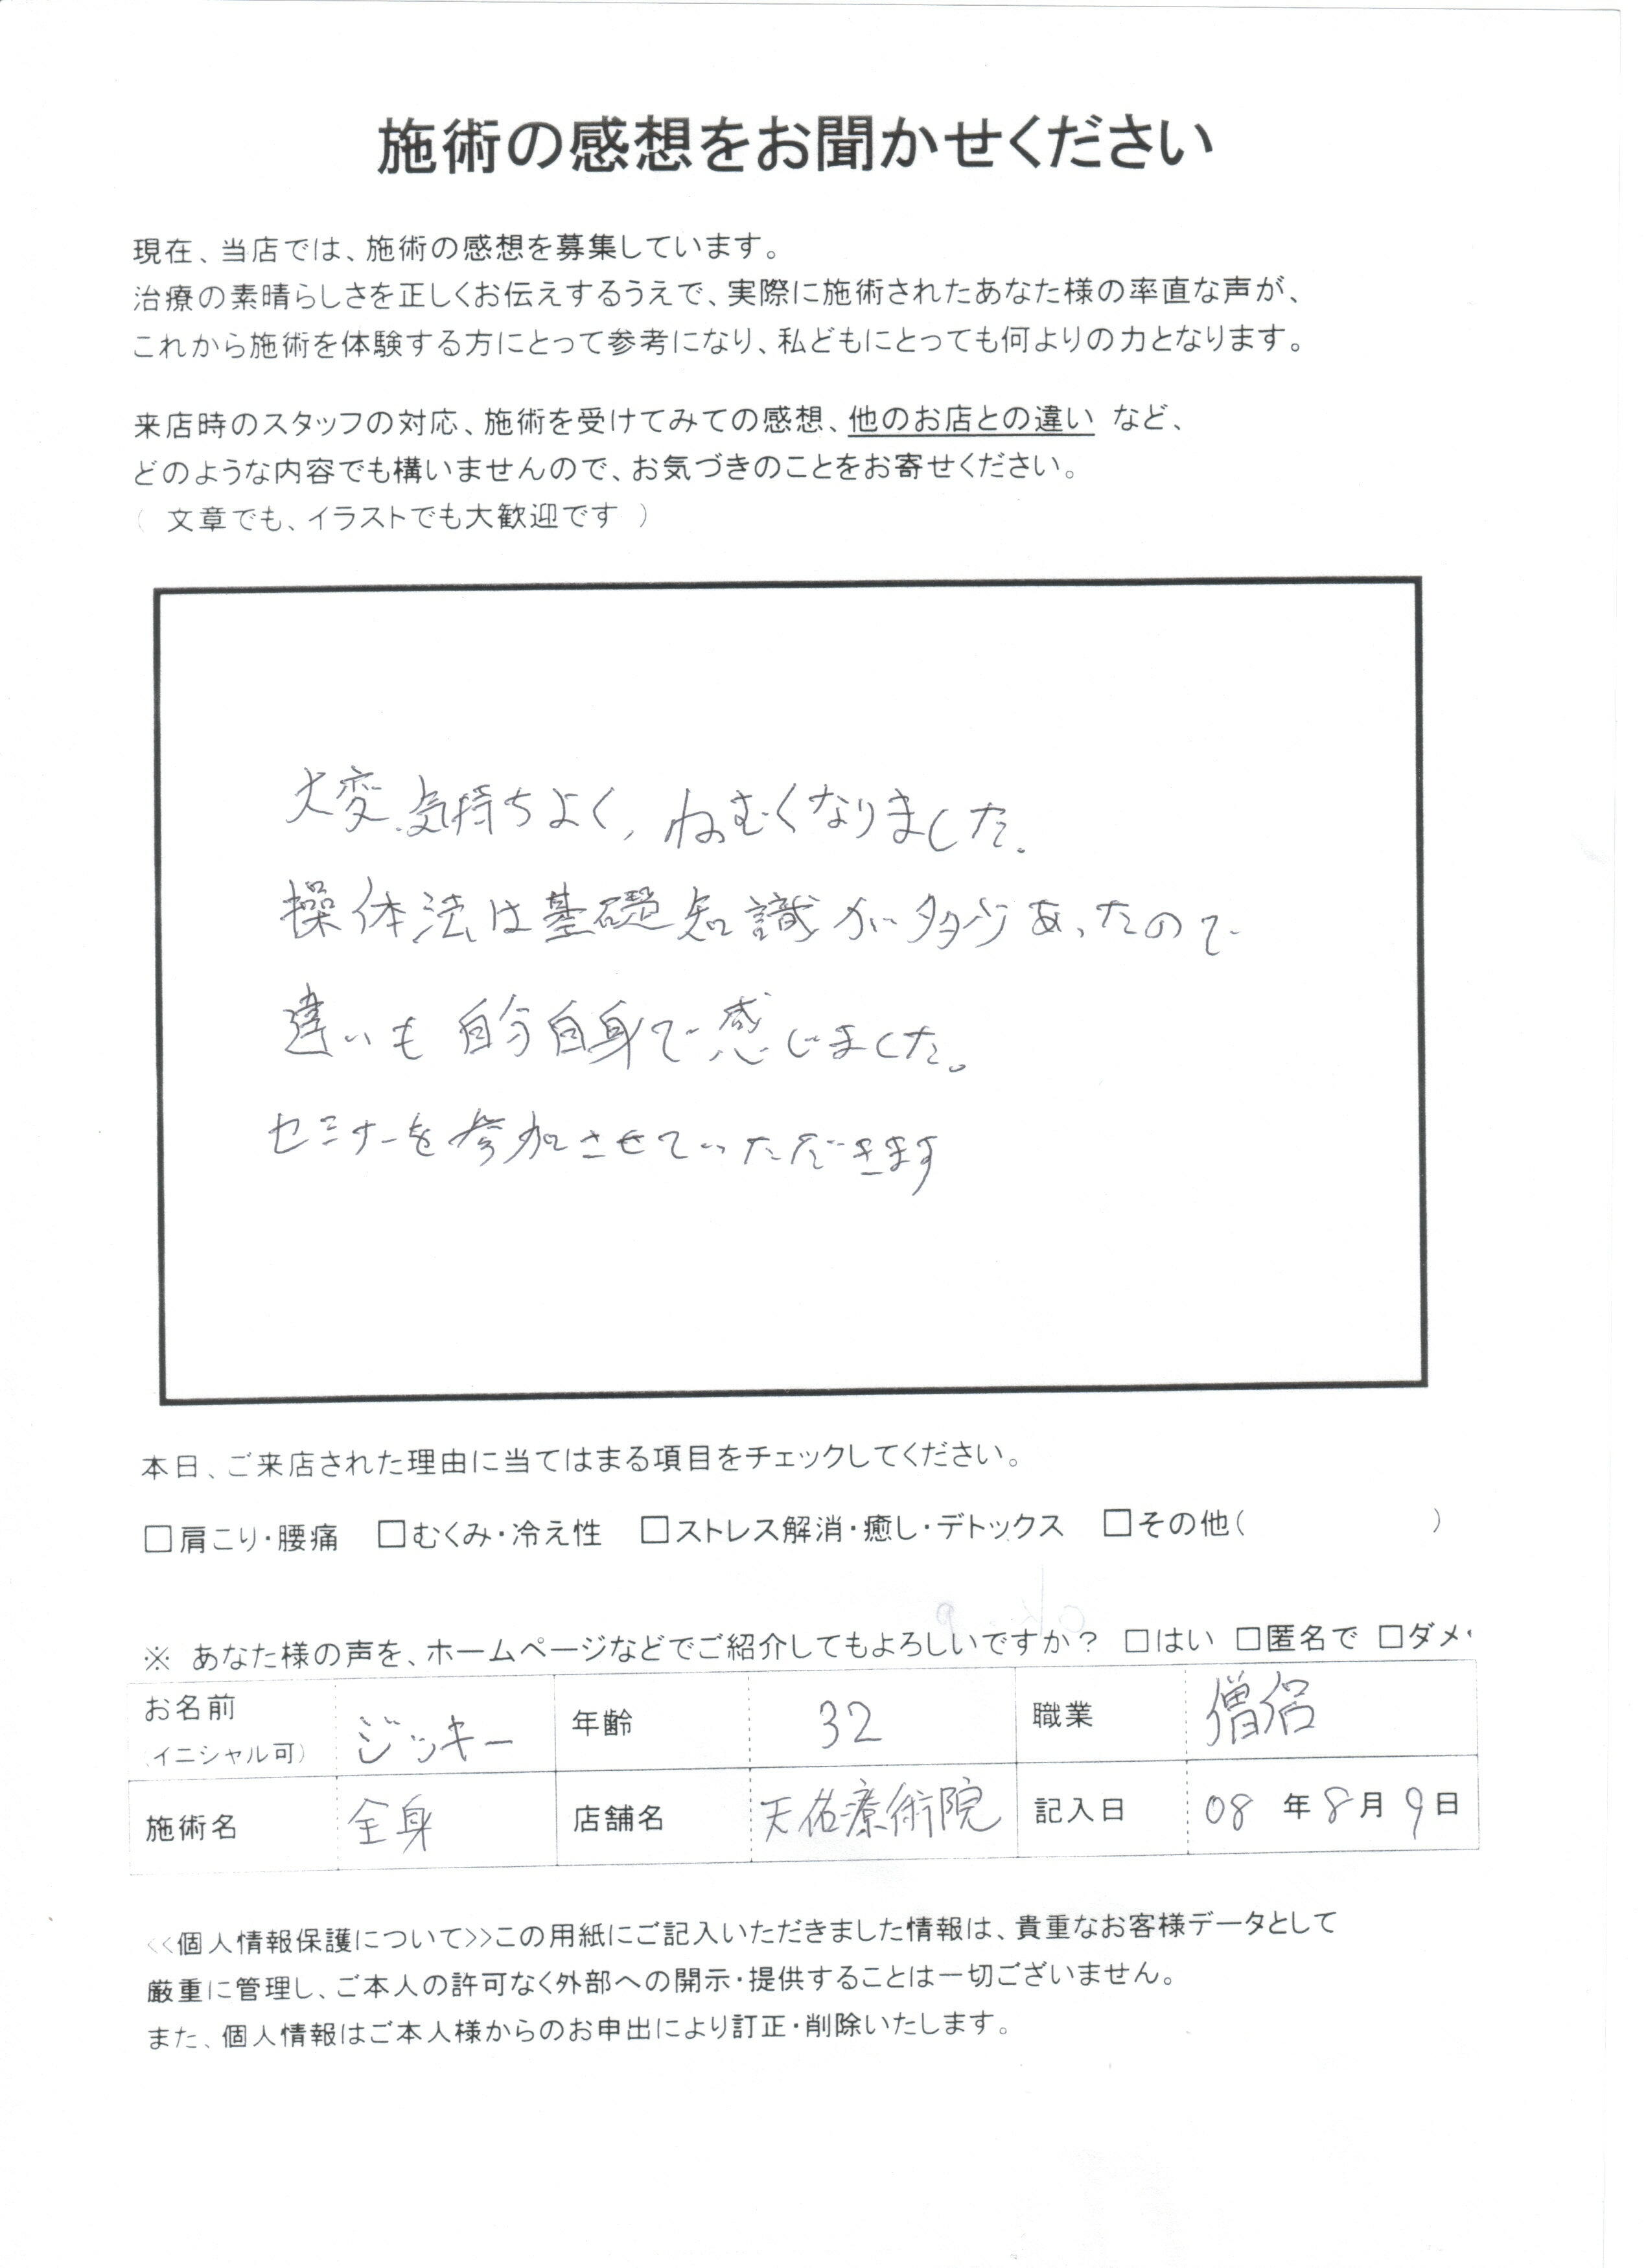 施術の感想をお聞かせください
現在、当店では、施術の感想を募集しています。
治療の素晴らしさを正しくお伝えするうえで、実際に施術されたあなた様の率直な声が、
これから施術を体験する方にとって参考になり、私どもにとっても何よりの力となります。
来店時のスタッフの対応、施術を受けてみての感想、他のお店との違い など、
どのような内容でも構いませんので、お気づきのことをお寄せください。
( 文章でも、イラストでも大歓迎です )
大変気持ちよく、ねむくなりました.
操体法は基礎知識が多少あったので
違いも自分自身で感じました。
セミナーを参加させていただきます
本日、ご来店された理由に当てはまる項目をチェックしてください。
□肩こり・腰痛 □むくみ・冷え性 □ストレス解消・癒し・デトックス □その他( )
※ あなた様の声を、ホームページなどでご紹介してもよろしいですか? □はい □匿名で □ダメ
お名前 (イニシャル可) ジッキー 年齢 32 職業 僧侶
施術名 全身 店舗名 天佑療術院 記入日 08 年 8 月 9 日
<<個人情報保護について>>この用紙にご記入いただきました情報は、貴重なお客様データとして
厳重に管理し、ご本人の許可なく外部への開示・提供することは一切ございません。
また、個人情報はご本人様からのお申出により訂正・削除いたします。